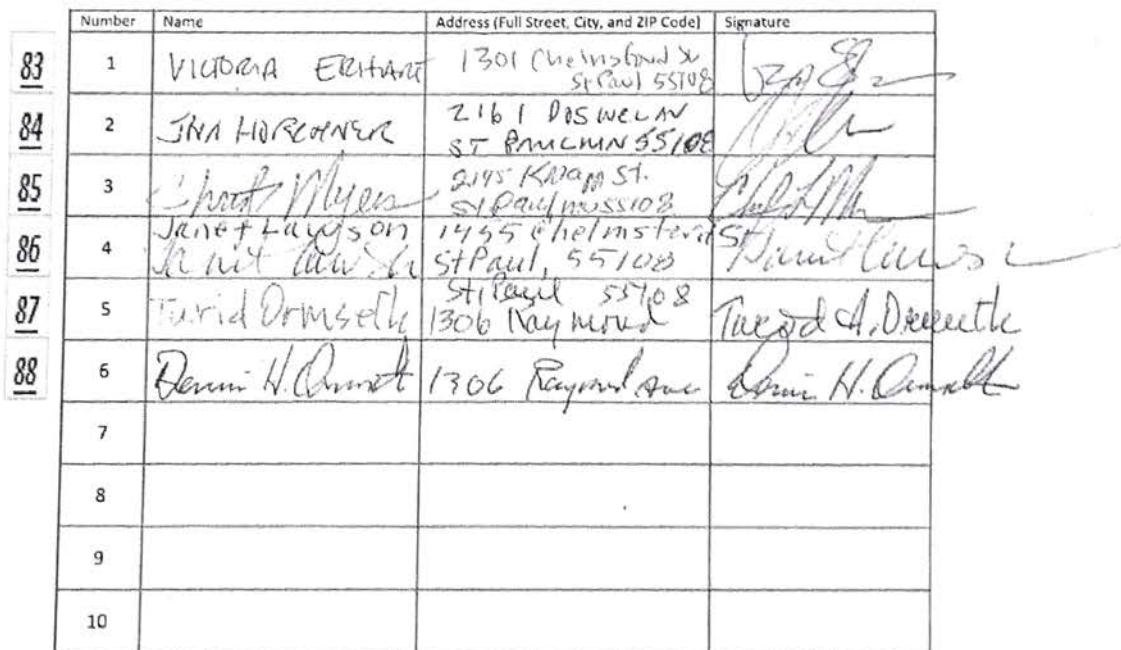 Number Name Address (Full Street, City, and ZIP Code) Signature
83 1 VICTORIA ERHART 1301 Chelmsford St
St Paul 55108
84 2 2161
ST PAUL MN 55108
85 3 Myers 2145 Knapp St.
St Paul mn 55108
86 4 Janet Lawson 1455 Chelmsford St
Janet Lawson St Paul, 55108 Janet Lawson
87 5 Turid Ormseth St. Paul 55108
1306 Raymond Turid A. Ormseth
88 6 Dennis H. Ormseth 1306 Raymond Ave Dennis H. Ormseth
7
8
9
10